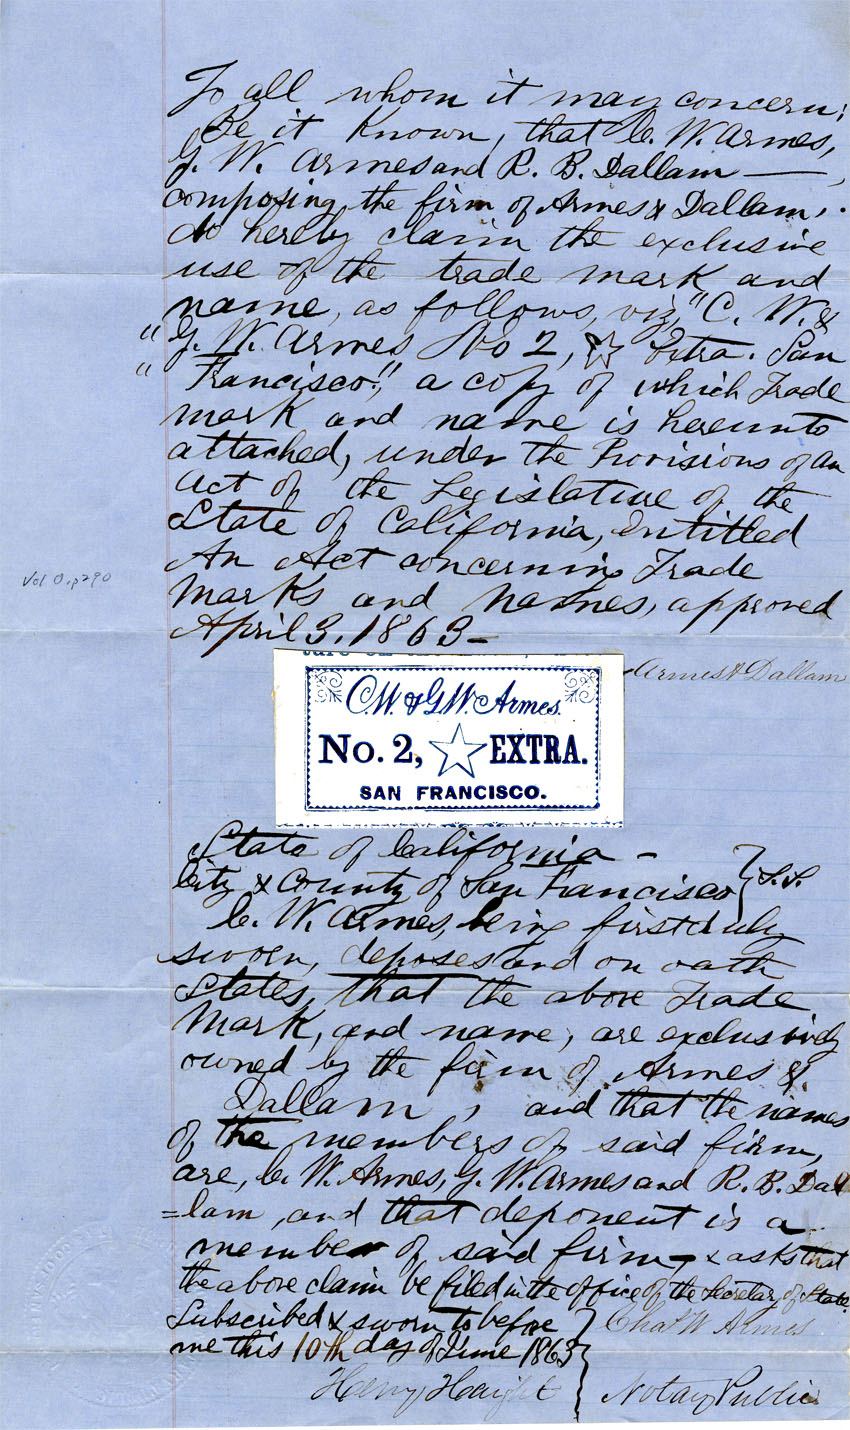 To all whom it may concern;
Be it Known, that C. W. Armes,
G. W. Armes and R. B. Dallam —,
composing the firm of Armes & Dallam,
do hereby claim the exclusive
use of the trade mark and
name, as follows, viz, "C. W. &
" G. W. Armes No 2, ☆ Extra. San
" Francisco", a copy of which Trade
Mark and name is hereunto
attached, under the Provisions of an
Act of the Legislative of the
State of California, Entitled
An Act concerning Trade
Marks and Names, approved
April 3. 1863 –
Vol 0, p290
Armes & Dallam
C.W. & G.W. Armes.
No. 2, ☆ EXTRA.
SAN FRANCISCO.
State of California –
City & County of San Francisco } S.S.
C. W. Armes, being first duly
sworn, deposes and on oath
States, that the above Trade
Mark, and name, are exclusively
owned by the firm of Armes &
Dallam, and that the names
of the members of said firm,
are, C. W. Armes, G. W. Armes and R. B. Dal
=lam, and that deponent is a
member of said firm – & asks that
the above claim be filed in the office of the Secretary of State.
Subscribed & sworn to before } Chas W Armes
me this 10th day of June 1863
Henry Haight } Notary Public